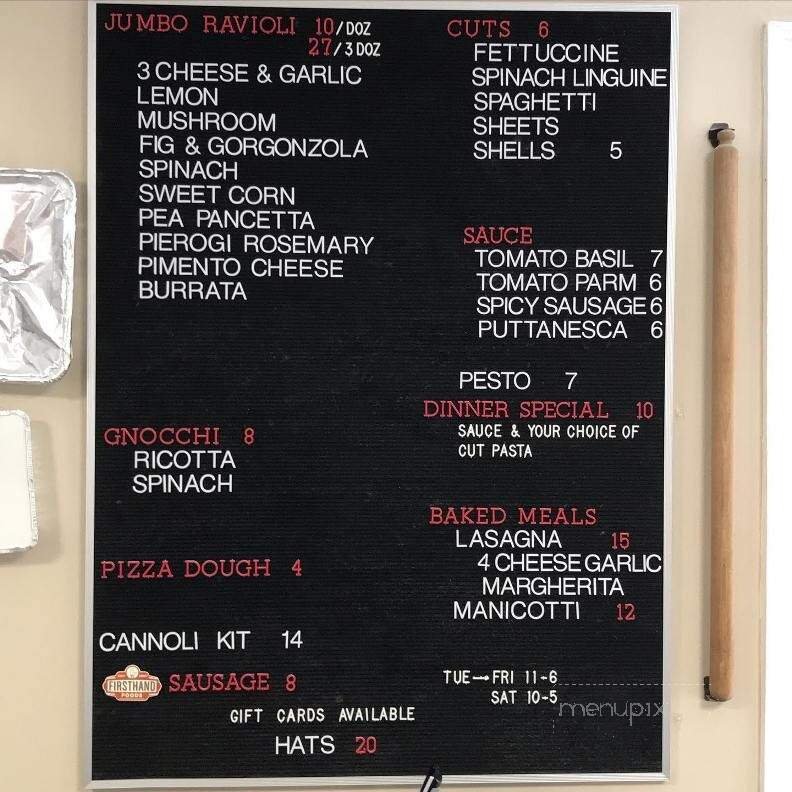 JUMBO RAVIOLI 10/DOZ
27/3 DOZ
3 CHEESE & GARLIC
LEMON
MUSHROOM
FIG & GORGONZOLA
SPINACH
SWEET CORN
PEA PANCETTA
PIEROGI ROSEMARY
PIMENTO CHEESE
BURRATA
GNOCCHI 8
RICOTTA
SPINACH
PIZZA DOUGH 4
CANNOLI KIT 14
FIRSTHAND
FOODS
SAUSAGE 8
GIFT CARDS AVAILABLE
HATS 20
CUTS 6
FETTUCCINE
SPINACH LINGUINE
SPAGHETTI
SHEETS
SHELLS 5
SAUCE
TOMATO BASIL 7
TOMATO PARM 6
SPICY SAUSAGE 6
PUTTANESCA 6
PESTO 7
DINNER SPECIAL 10
SAUCE & YOUR CHOICE OF
CUT PASTA
BAKED MEALS
LASAGNA 15
4 CHEESE GARLIC
MARGHERITA
MANICOTTI 12
TUE→FRI 11-6
SAT 10-5
menupix